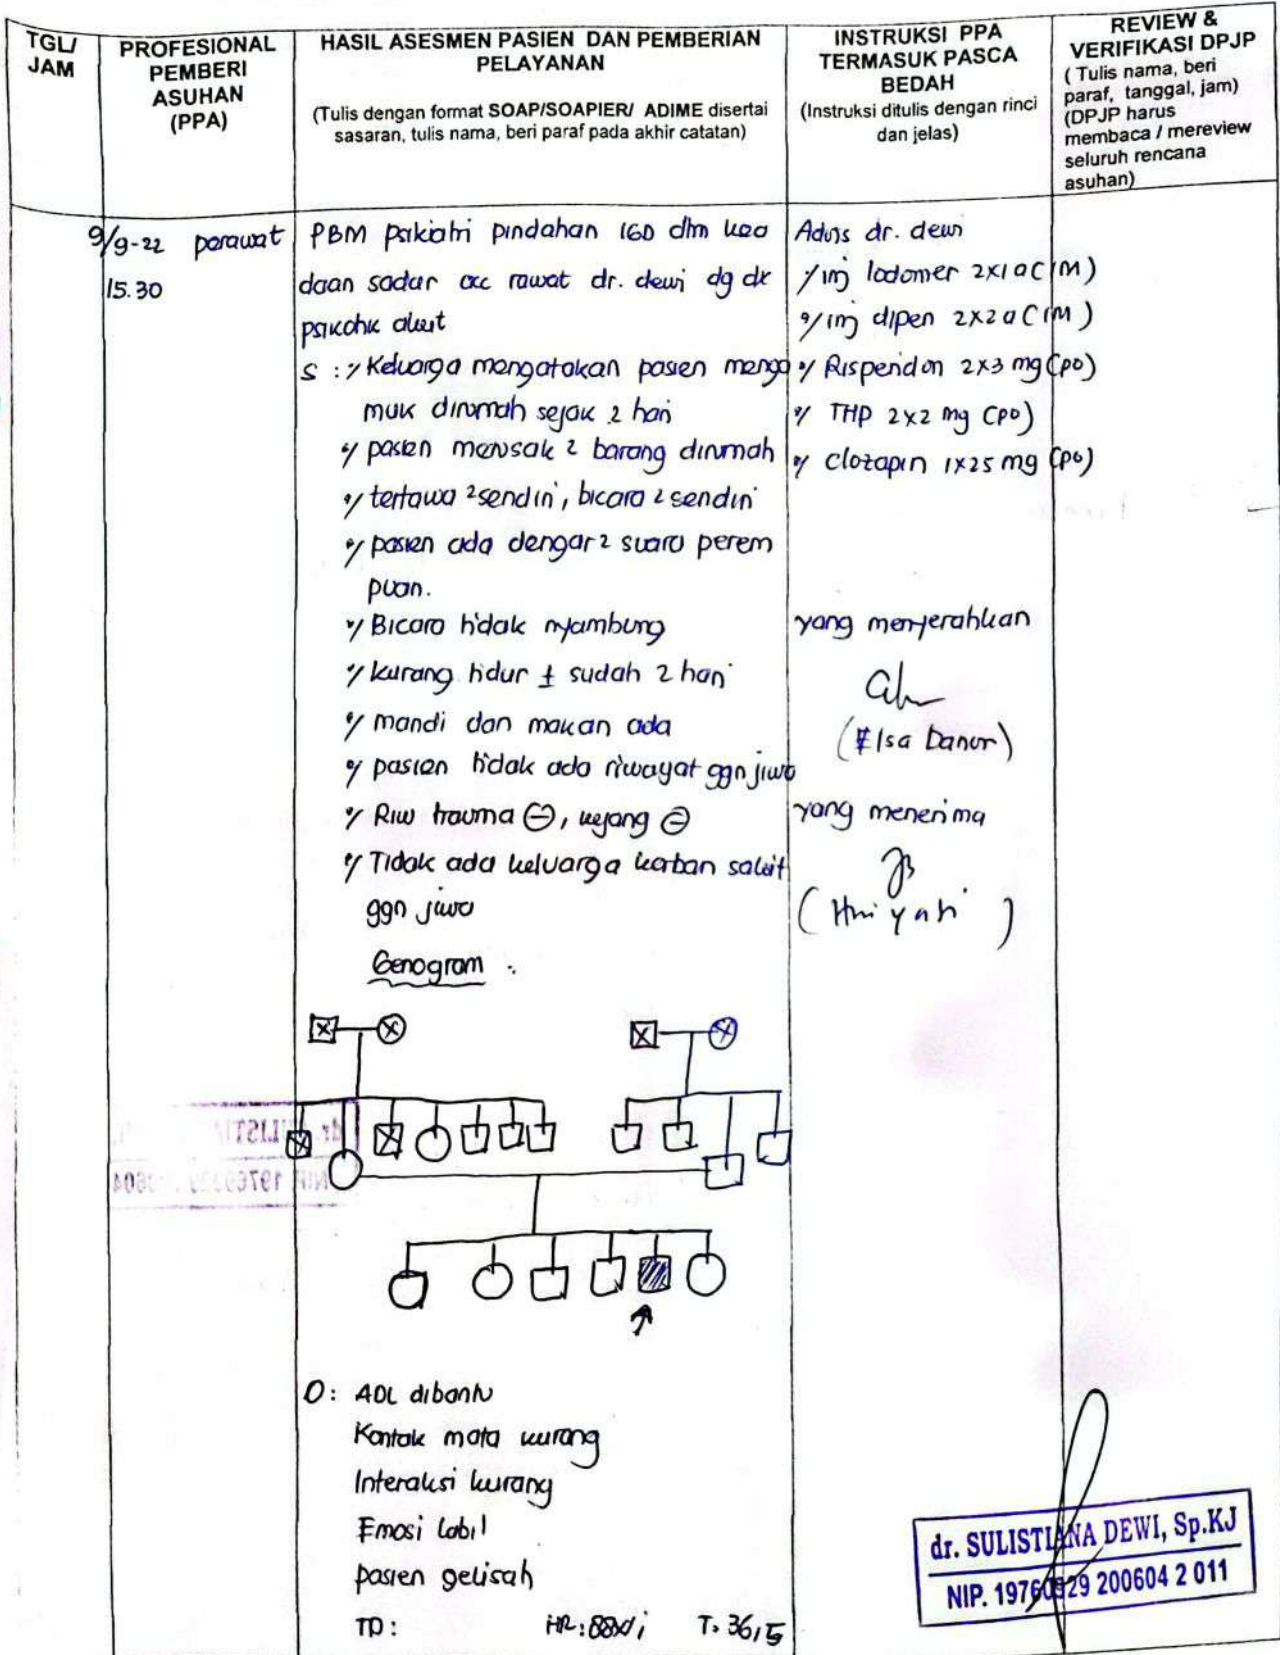 TGL/
JAM
PROFESIONAL
PEMBERI
ASUHAN
(PPA)
HASIL ASESMEN PASIEN DAN PEMBERIAN
PELAYANAN
(Tulis dengan format SOAP/SOAPIER/ ADIME disertai
sasaran, tulis nama, beri paraf pada akhir catatan)
INSTRUKSI PPA
TERMASUK PASCA
BEDAH
(Instruksi ditulis dengan rinci
dan jelas)
REVIEW &
VERIFIKASI DPJP
( Tulis nama, beri
paraf, tanggal, jam)
(DPJP harus
membaca / mereview
seluruh rencana
asuhan)
9/9-22
15.30
perawat
PBM psikiatri pindahan IGD dlm kea
daan sadar acc rawat dr. dewi dg dx
psikotik akut
S : Keluarga mengatakan pasien menga
muk dirumah sejak 2 hari
pasien merusak 2 barang dirumah
tertawa 2 sendiri, bicara 2 sendiri
pasien ada dengar 2 suara perem
puan.
Bicara tidak nyambung
kurang tidur ± sudah 2 hari
mandi dan makan ada
pasien tidak ada riwayat ggn jiwa
Riw trauma ⊖, kejang ⊖
Tidak ada keluarga sakit
ggn jiwa
Genogram :
O: ADL dibantu
Kontak mata kurang
Interaksi kurang
Emosi labil
pasien gelisah
TD: HR: 88x/i T: 36,5
Advis dr. dewi
inj lodomer 2x1 a (IM)
inj dipen 2x2 a (IM)
Risperidon 2x3 mg (po)
THP 2x2 mg (po)
clozapin 1x25 mg (po)
yang menyerahkan
(Elsa Danur)
yang menerima
dr. SULISTIANA DEWI, Sp.KJ
NIP. 19760929 200604 2 011